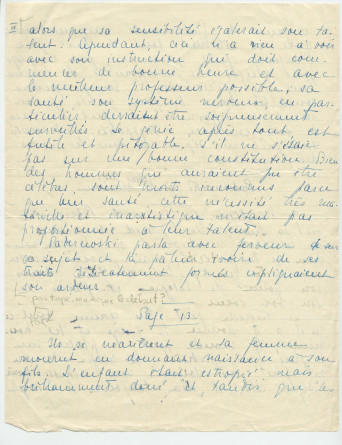 II alors que sa sensibilité égalerait son ta-
lent. Cependant, ceci n'a rien à voir
avec son instruction qui doit com-
mencer de bonne heure et avec
le meilleur professeur possible; sa
santé son système nerveux, en par-
ticulier, devraient être soigneusement
surveillés. Le génie, après tout, est
futile et pitoyable, s'il ne s'étaie
pas sur une bonne constitution. Bien
des hommes que auraient pu être
célèbres, sont morts inconnus parce
que leur santé, cette nécessité très ma-
térielle et inartistique n'était pas
proportionnée à leur talent.
Paderewski parla avec ferveur sur
ce sujet et la pâleur ivoire de ses
traits délicatement formés expliquaient
son ardeur.
Page 13
Ils se marièrent et sa femme
mourut en donnant naissance à son
fils. L'enfant était estropié mais
brillamment doué et tandis que